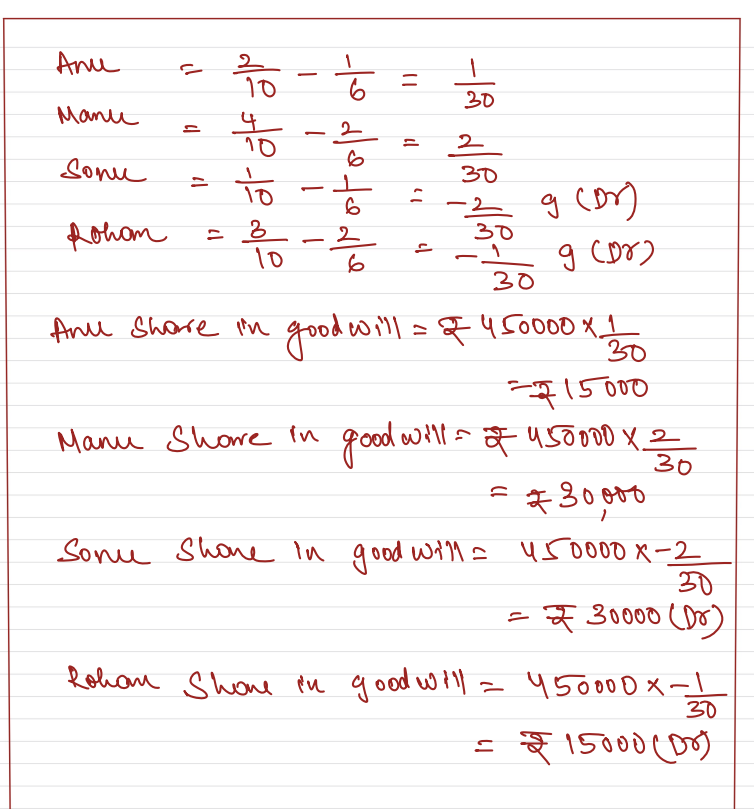 Anu = 2/10 - 1/6 = 1/30
Manu = 4/10 - 2/6 = 2/30
Sonu = 1/10 - 1/6 = -2/30 g (Dr)
Rohan = 3/10 - 2/6 = -1/30 g (Dr)
Anu Share in goodwill = ₹ 450000 x 1/30
= ₹ 15000
Manu Share in goodwill = ₹ 450000 x 2/30
= ₹ 30,000
Sonu Share in goodwill = 450000 x -2/30
= ₹ 30000 (Dr)
Rohan Share in goodwill = 450000 x -1/30
= ₹ 15000 (Dr)